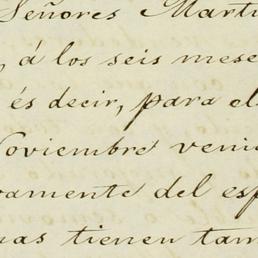 Señores Martí
, á los seis mese
és decir, para el
Noviembre veni
vamente del esp
nas tienen tam